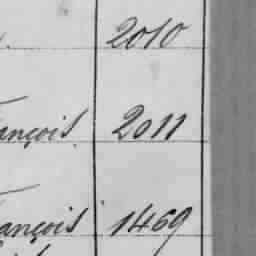 2010
ançois 2011
ançois 1469